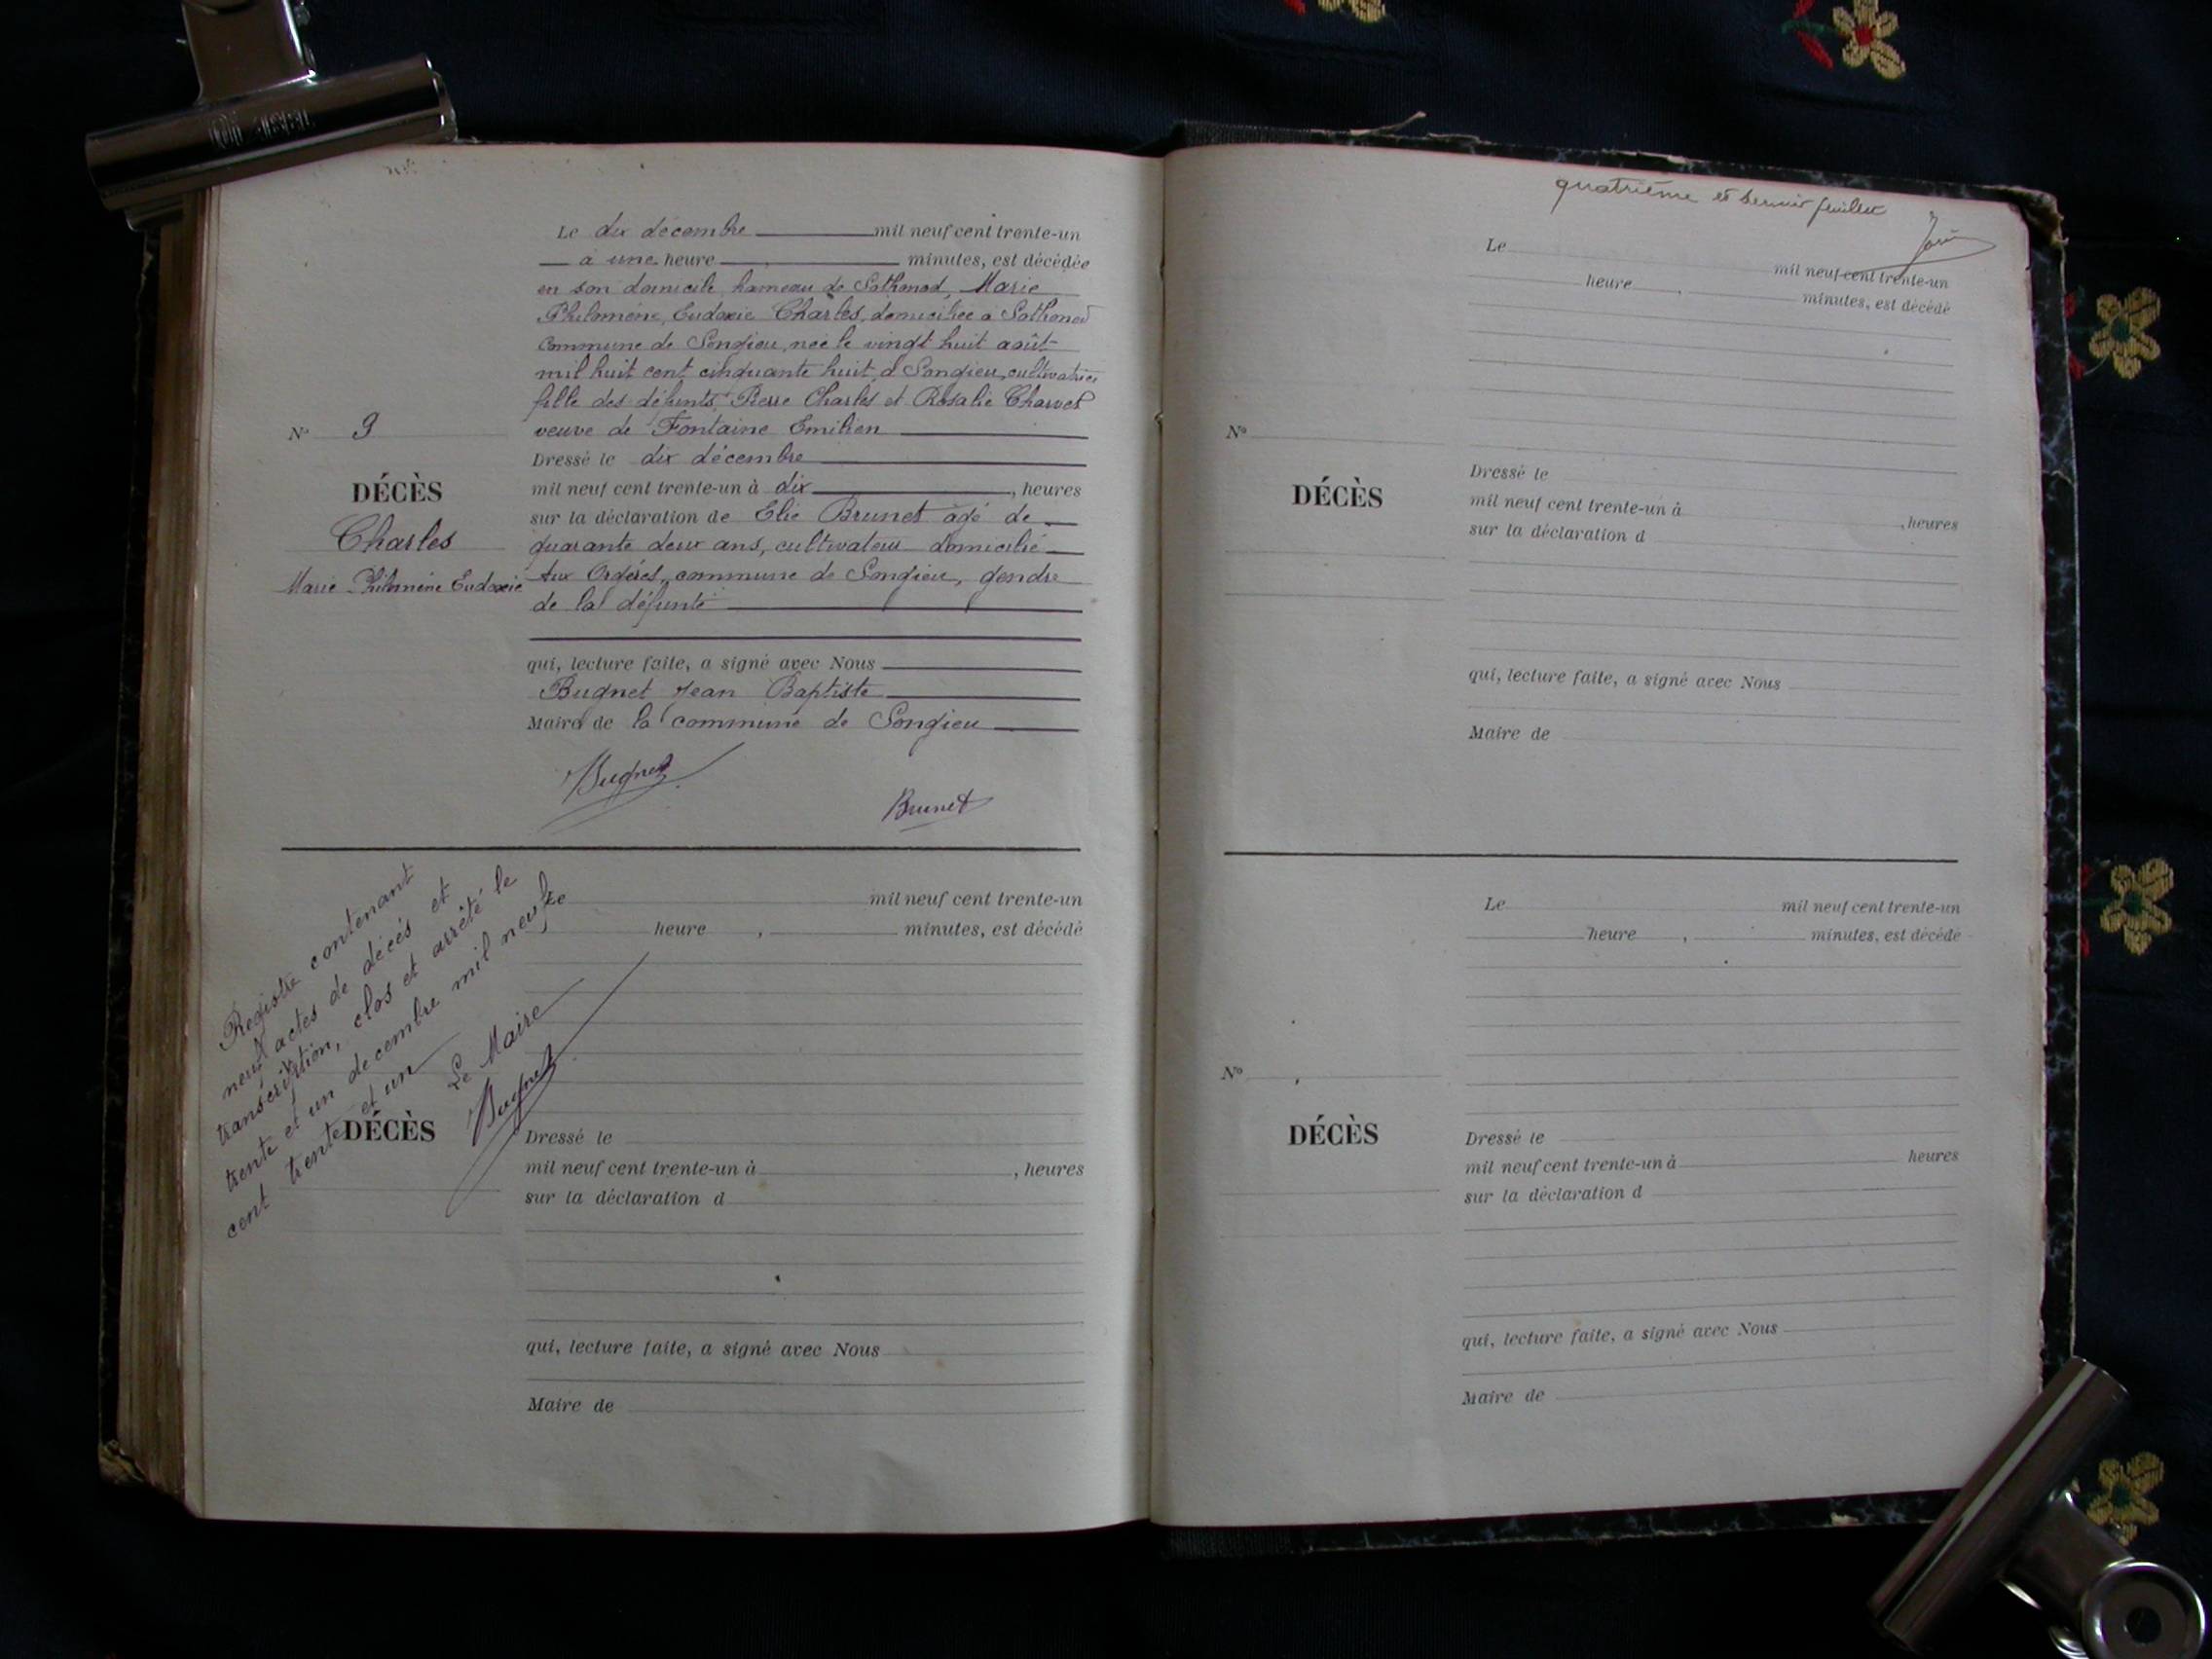 Le dix décembre mil neuf cent trente-un
à une heure minutes, est décédée
en son domicile, hameau de Sothonod, Marie
Philomène, Eudoxie Charles, domiciliée à Sothonod
commune de Songieu, née le vingt huit août
mil huit cent cinquante huit, à Songieu, cultivatrice
fille des défunts, Pierre Charles et Rosalie Charvet
N° 9
veuve de Fontaine Emilien
Dressé le dix décembre
DÉCÈS
mil neuf cent trente-un à dix, heures
sur la déclaration de Elie Brunet âgé de
Charles
quarante deux ans, cultivateur domicilié
Marie Philomène Eudoxie
Aux Orgères, commune de Songieu, gendre
de la défunte
qui, lecture faite, a signé avec Nous
Bugnet Jean Baptiste
Maire de la commune de Songieu
Bugnet
Brunet
Registre contenant
neuf actes de décès et
transcription, clos et arrêté le
trente et un décembre mil neuf
cent trente et un
Le Maire
Bugnet
Le mil neuf cent trente-un
heure , minutes, est décédé
DÉCÈS
Dressé le
mil neuf cent trente-un à , heures
sur la déclaration d
qui, lecture faite, a signé avec Nous
Maire de
quatrième et dernier feuillet
Le mil neuf cent trente-un
heure , minutes, est décédé
N°
Dressé le
DÉCÈS
mil neuf cent trente-un à , heures
sur la déclaration d
qui, lecture faite, a signé avec Nous
Maire de
Le mil neuf cent trente-un
heure , minutes, est décédé
N°
DÉCÈS
Dressé le
mil neuf cent trente-un à heures
sur la déclaration d
qui, lecture faite, a signé avec Nous
Maire de